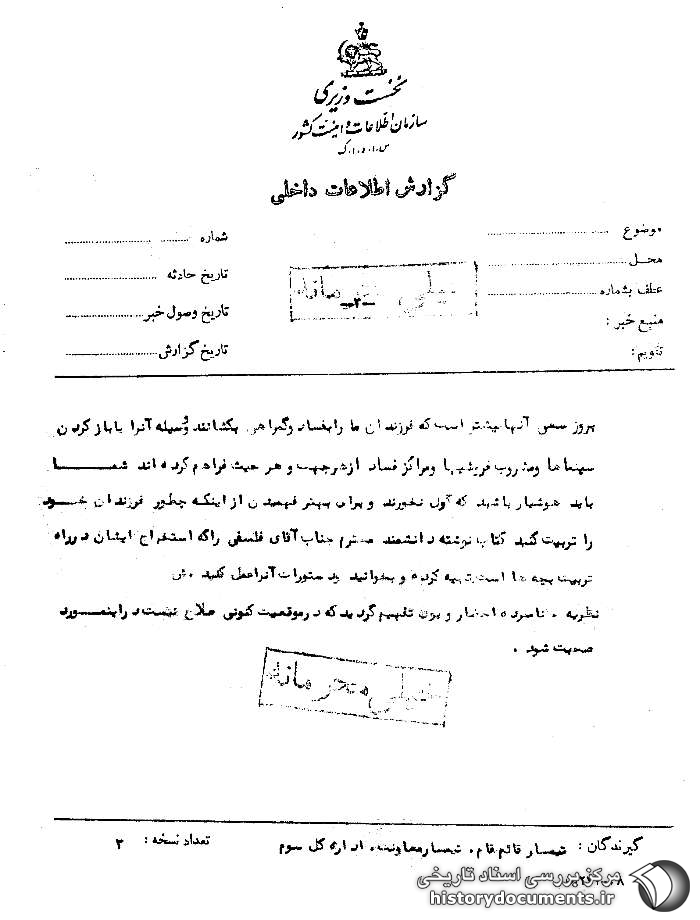 نخست وزیری
سازمان اطلاعات و امنیت کشور
س.ا.و.ا.ک
گزارش اطلاعات داخلی
موضوع
شماره
محل
تاریخ حادثه
عطف بشماره
تاریخ وصول خبر
منبع خبر :
تاریخ گزارش
تقویم :
خیلی محرمانه
-۲-
بروز سعی آنها بیشتر است که فرزندان ما را بفساد و گمراهی بکشانند وسیله آنرا با باز کردن
سینماها ومشروب فروشیها ومراکز فساد ازهرجهت و هر حیث فراهم کرده اند شمـــا
باید هوشیار باشید که گول نخورند و برای بهتر فهمیدن از اینکه چطور فرزندان خــود
را تربیت کنید کتاب نوشته دانشمند محترم جناب آقای فلسفی راکه استخراج ایشان درراه
تربیت بچه ها است تهیه کرده و بخوانید و دستورات آنراعمل کنید .
نظریه . نامبرده احضار و باو تفهیم گردید که درموقعیت کنونی صلاح نیست دراینمــورد
صحبت شود .
خیلی محرمانه
گیرندگان : تیمسار قائم مقام . تیمسارمعاونت . اداره کل سوم
تعداد نسخه : ۳
مرکز بررسی اسناد تاریخی
historydocuments.ir